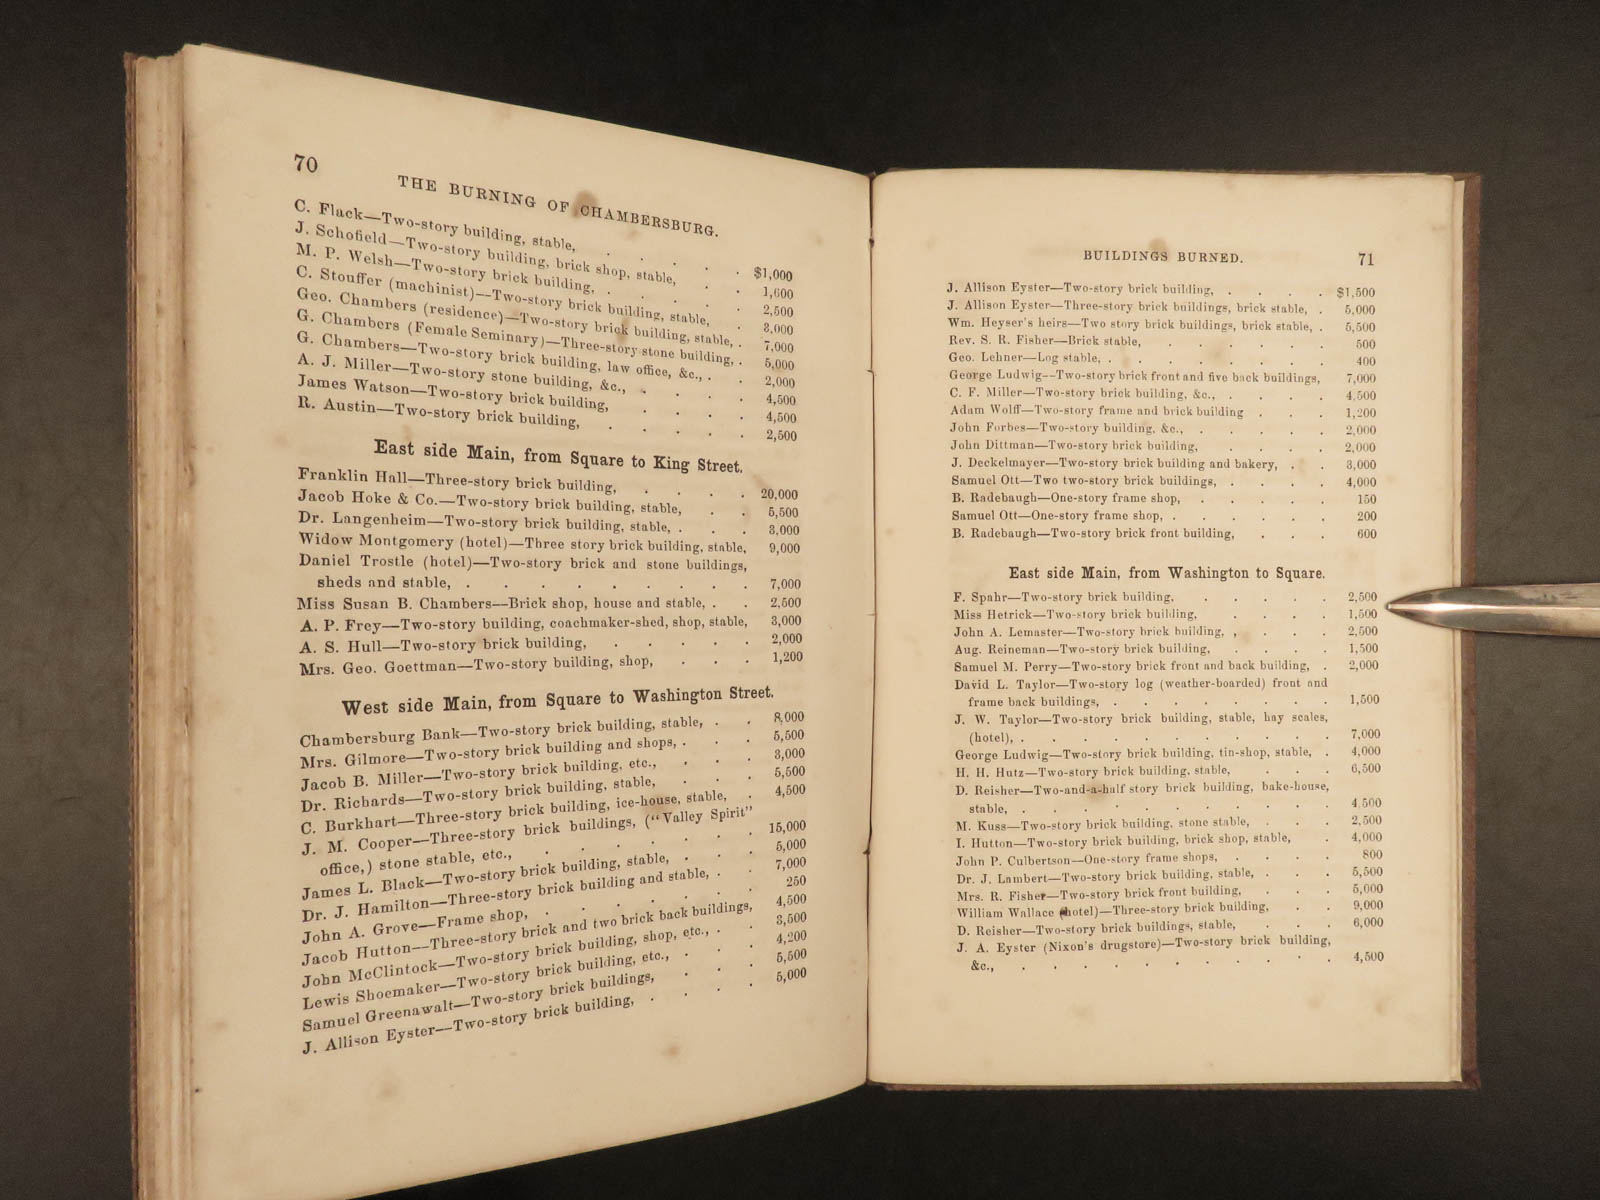 70
THE BURNING OF CHAMBERSBURG.
C. Flack—Two-story building, stable, . . . . . $1,000
J. Schofield—Two-story building, brick shop, stable, . . 1,600
M. P. Welsh—Two-story brick building, . . . . . 2,500
C. Stouffer (machinist)—Two-story brick building, stable, . 3,000
Geo. Chambers (residence)—Two-story brick building, stable, . 7,000
G. Chambers (Female Seminary)—Three-story stone building, . 5,000
G. Chambers—Two-story brick building, law office, &c., . . 2,000
A. J. Miller—Two-story stone building, &c., . . . . 4,500
James Watson—Two-story brick building, . . . . 4,500
R. Austin—Two-story brick building, . . . . . 2,500
East side Main, from Square to King Street.
Franklin Hall—Three-story brick building, . . . . 20,000
Jacob Hoke & Co.—Two-story brick building, stable, . . 5,500
Dr. Langenheim—Two-story brick building, stable, . . . 3,000
Widow Montgomery (hotel)—Three story brick building, stable, 9,000
Daniel Trostle (hotel)—Two-story brick and stone buildings,
sheds and stable, . . . . . . . . 7,000
Miss Susan B. Chambers—Brick shop, house and stable, . . 2,500
A. P. Frey—Two-story building, coachmaker-shed, shop, stable, 3,000
A. S. Hull—Two-story brick building, . . . . . 2,000
Mrs. Geo. Goettman—Two-story building, shop, . . . 1,200
West side Main, from Square to Washington Street.
Chambersburg Bank—Two-story brick building, stable, . . 8,000
Mrs. Gilmore—Two-story brick building and shops, . . . 5,500
Jacob B. Miller—Two-story brick building, etc., . . . 3,000
Dr. Richards—Two-story brick building, stable, . . . 5,500
C. Burkhart—Three-story brick building, ice-house, stable, . 4,500
J. M. Cooper—Three-story brick buildings, ("Valley Spirit"
office,) stone stable, etc., . . . . . . 15,000
James L. Black—Two-story brick building, stable, . . . 5,000
Dr. J. Hamilton—Three-story brick building and stable, . . 7,000
John A. Grove—Frame shop, . . . . . . 250
Jacob Hutton—Three-story brick and two brick back buildings, 4,500
John McClintock—Two-story brick building, shop, etc., . . 3,500
Lewis Shoemaker—Two-story brick building, etc., . . . 4,200
Samuel Greenawalt—Two-story brick buildings, . . . 5,500
J. Allison Eyster—Two-story brick building, . . . . 5,000
BUILDINGS BURNED. 71
J. Allison Eyster—Two-story brick building, . . . . $1,500
J. Allison Eyster—Three-story brick buildings, brick stable, . 5,000
Wm. Heyser's heirs—Two story brick buildings, brick stable, . 5,500
Rev. S. R. Fisher—Brick stable, . . . . . . 500
Geo. Lehner—Log stable, . . . . . . . . 400
George Ludwig—Two-story brick front and five back buildings, 7,000
C. F. Miller—Two-story brick building, &c., . . . . 4,500
Adam Wolff—Two-story frame and brick building . . . 1,200
John Forbes—Two-story building, &c., . . . . . 2,000
John Dittman—Two-story brick building, . . . . 2,000
J. Deckelmayer—Two-story brick building and bakery, . . 3,000
Samuel Ott—Two two-story brick buildings, . . . . 4,000
B. Radebaugh—One-story frame shop, . . . . . 150
Samuel Ott—One-story frame shop, . . . . . . 200
B. Radebaugh—Two-story brick front building, . . . 600
East side Main, from Washington to Square.
F. Spahr—Two-story brick building, . . . . . 2,500
Miss Hetrick—Two-story brick building, . . . . 1,500
John A. Lemaster—Two-story brick building, . . . . 2,500
Aug. Reineman—Two-story brick building, . . . . 1,500
Samuel M. Perry—Two-story brick front and back building, . 2,000
David L. Taylor—Two-story log (weather-boarded) front and
frame back buildings, . . . . . . . . 1,500
J. W. Taylor—Two-story brick building, stable, hay scales,
(hotel), . . . . . . . . . . . 7,000
George Ludwig—Two-story brick building, tin-shop, stable, . 4,000
H. H. Hutz—Two-story brick building, stable, . . . 6,500
D. Reisher—Two-and-a-half story brick building, bake-house,
stable, . . . . . . . . . . . 4,500
M. Kuss—Two-story brick building, stone stable, . . . 2,500
I. Hutton—Two-story brick building, brick shop, stable, . 4,000
John P. Culbertson—One-story frame shops, . . . . 800
Dr. J. Lambert—Two-story brick building, stable, . . . 5,500
Mrs. R. Fisher—Two-story brick front building, . . . 5,000
William Wallace (hotel)—Three-story brick building, . . 9,000
D. Reisher—Two-story brick buildings, stable, . . . 6,000
J. A. Eyster (Nixon's drugstore)—Two-story brick building,
&c., . . . . . . . . . . . 4,500